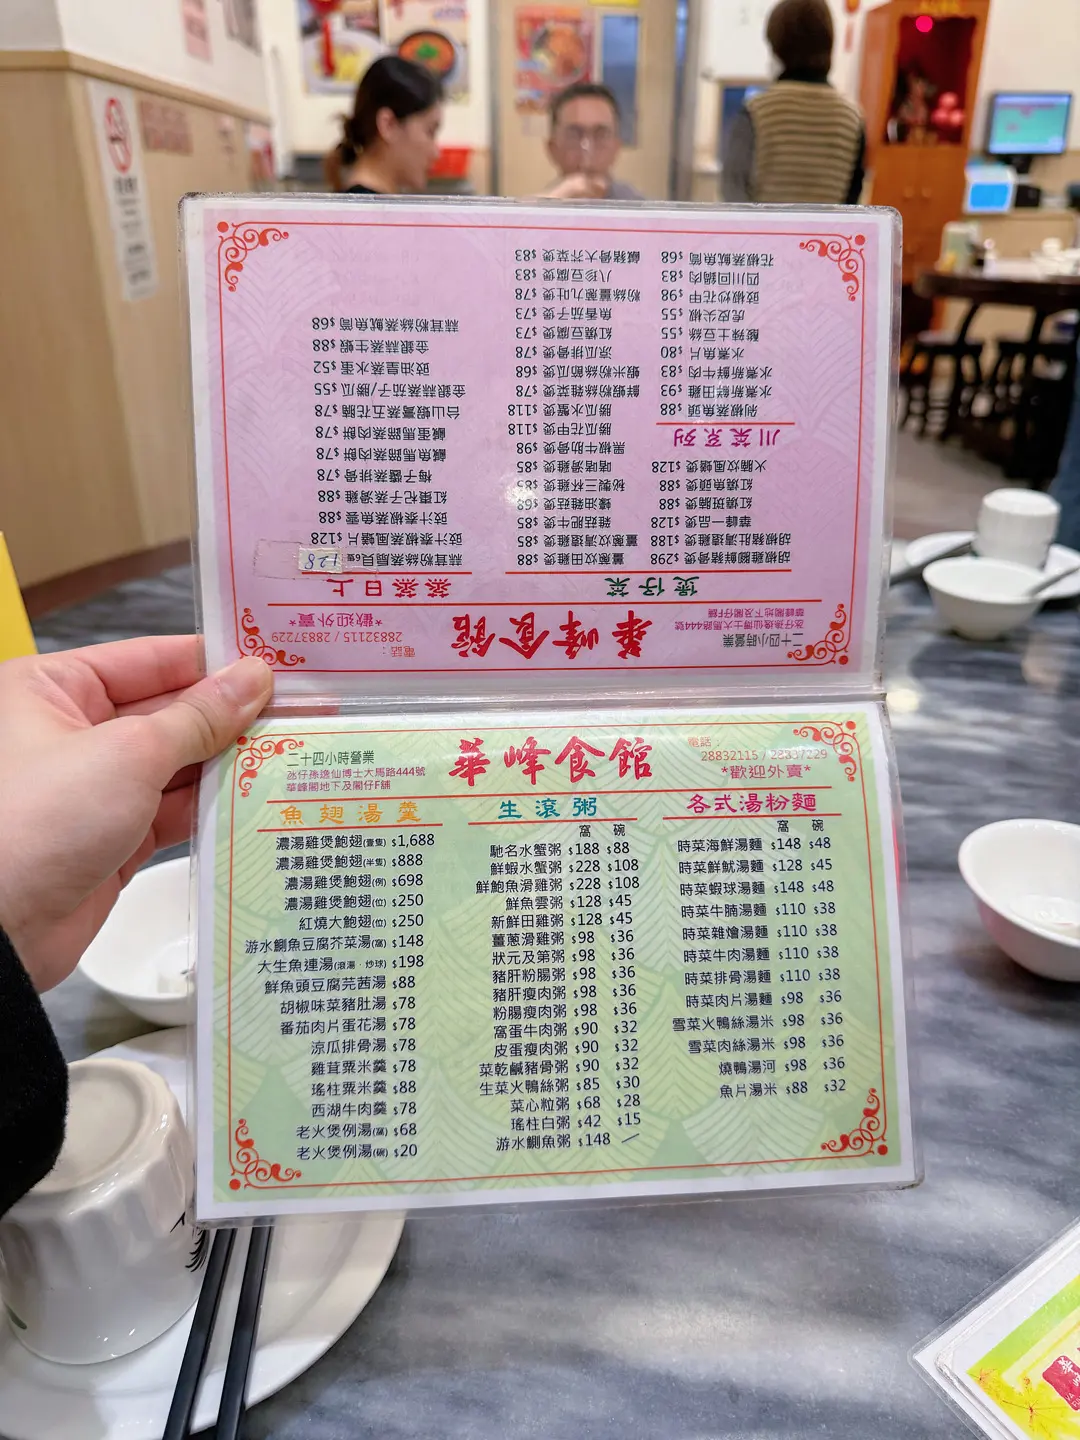 華峰食館
二十四小時營業
氹仔孫逸仙博士大馬路444號
華峰閣地下及閣仔F舖
電話：
28832115 / 28837229
*歡迎外賣*
魚翅湯羹
濃湯雞煲鮑翅(壹隻) $1,688
濃湯雞煲鮑翅(半隻) $888
濃湯雞煲鮑翅(例) $698
濃湯雞煲鮑翅(位) $250
紅燒大鮑翅(位) $250
游水鯏魚豆腐芥菜湯(窩) $148
大生魚連湯(滾湯·炒球) $198
鮮魚頭豆腐芫茜湯 $88
胡椒味菜豬肚湯 $78
番茄肉片蛋花湯 $78
涼瓜排骨湯 $78
雞茸粟米羹 $78
瑤柱粟米羹 $88
西湖牛肉羹 $78
老火煲例湯(窩) $68
老火煲例湯(碗) $20
生滾粥
窩 碗
馳名水蟹粥 $188 $88
鮮蝦水蟹粥 $228 $108
鮮鮑魚滑雞粥 $228 $108
鮮魚雲粥 $128 $45
新鮮田雞粥 $128 $45
薑蔥滑雞粥 $98 $36
狀元及第粥 $98 $36
豬肝粉腸粥 $98 $36
豬肝瘦肉粥 $98 $36
粉腸瘦肉粥 $98 $36
窩蛋牛肉粥 $90 $32
皮蛋瘦肉粥 $90 $32
菜乾鹹豬骨粥 $90 $32
生菜火鴨絲粥 $85 $30
菜心粒粥 $68 $28
瑤柱白粥 $42 $15
游水鯏魚粥 $148 —
各式湯粉麵
窩 碗
時菜海鮮湯麵 $148 $48
時菜鮮魷湯麵 $128 $45
時菜蝦球湯麵 $148 $48
時菜牛腩湯麵 $110 $38
時菜雜燴湯麵 $110 $38
時菜牛肉湯麵 $110 $38
時菜排骨湯麵 $110 $38
時菜肉片湯麵 $98 $36
雪菜火鴨絲湯米 $98 $36
雪菜肉絲湯米 $98 $36
燒鴨湯河 $98 $36
魚片湯米 $88 $32
華峰食館
二十四小時營業
氹仔孫逸仙博士大馬路444號
華峰閣地下及閣仔F舖
電話：
28832115 / 28837229
*歡迎外賣*
煲仔菜
胡椒雞腳鮮豬骨煲 $298
胡椒豬肚清遠雞煲 $188
華峰一品煲 $128
紅燒斑腩煲 $88
紅燒魚頭煲 $88
火腩炆風鱔煲 $128
川菜系列
剁椒蒸魚頭 $88
水煮新鮮田雞 $93
水煮新鮮牛肉 $83
水煮魚片 $80
酸辣土豆絲 $55
虎皮尖椒 $55
豉椒炒花甲 $98
四川回鍋肉 $83
花椒蒸魷魚筒 $68
薑蔥炆田雞煲 $88
薑蔥炆清遠雞煲 $85
雜菇肥牛煲 $85
蠔油雜菇煲 $68
秘製三杯雞煲 $85
啫啫滑雞煲 $85
黑椒牛肋骨煲 $98
勝瓜花甲煲 $118
勝瓜水蟹煲 $118
鮮蝦粉絲雜菜煲 $78
蝦米粉絲節瓜煲 $68
涼瓜排骨煲 $78
紅燒豆腐煲 $73
魚香茄子煲 $73
粉絲薑蔥九吐煲 $78
八珍豆腐煲 $83
鹹豬骨大芥菜煲 $83
蒸蒸日上
蒜茸粉絲蒸扇貝 128
豉汁泰椒蒸風鱔片 $128
豉汁泰椒蒸魚雲 $88
紅棗杞子蒸滑雞 $88
梅子醬蒸排骨 $78
鹹魚馬蹄蒸肉餅 $78
鹹蛋馬蹄蒸肉餅 $78
台山蝦醬蒸五花腩 $78
金銀蒜蒸茄子/勝瓜 $55
豉油皇蒸水蛋 $52
金銀蒜蒸生蝦 $88
蒜茸粉絲蒸魷魚筒 $68